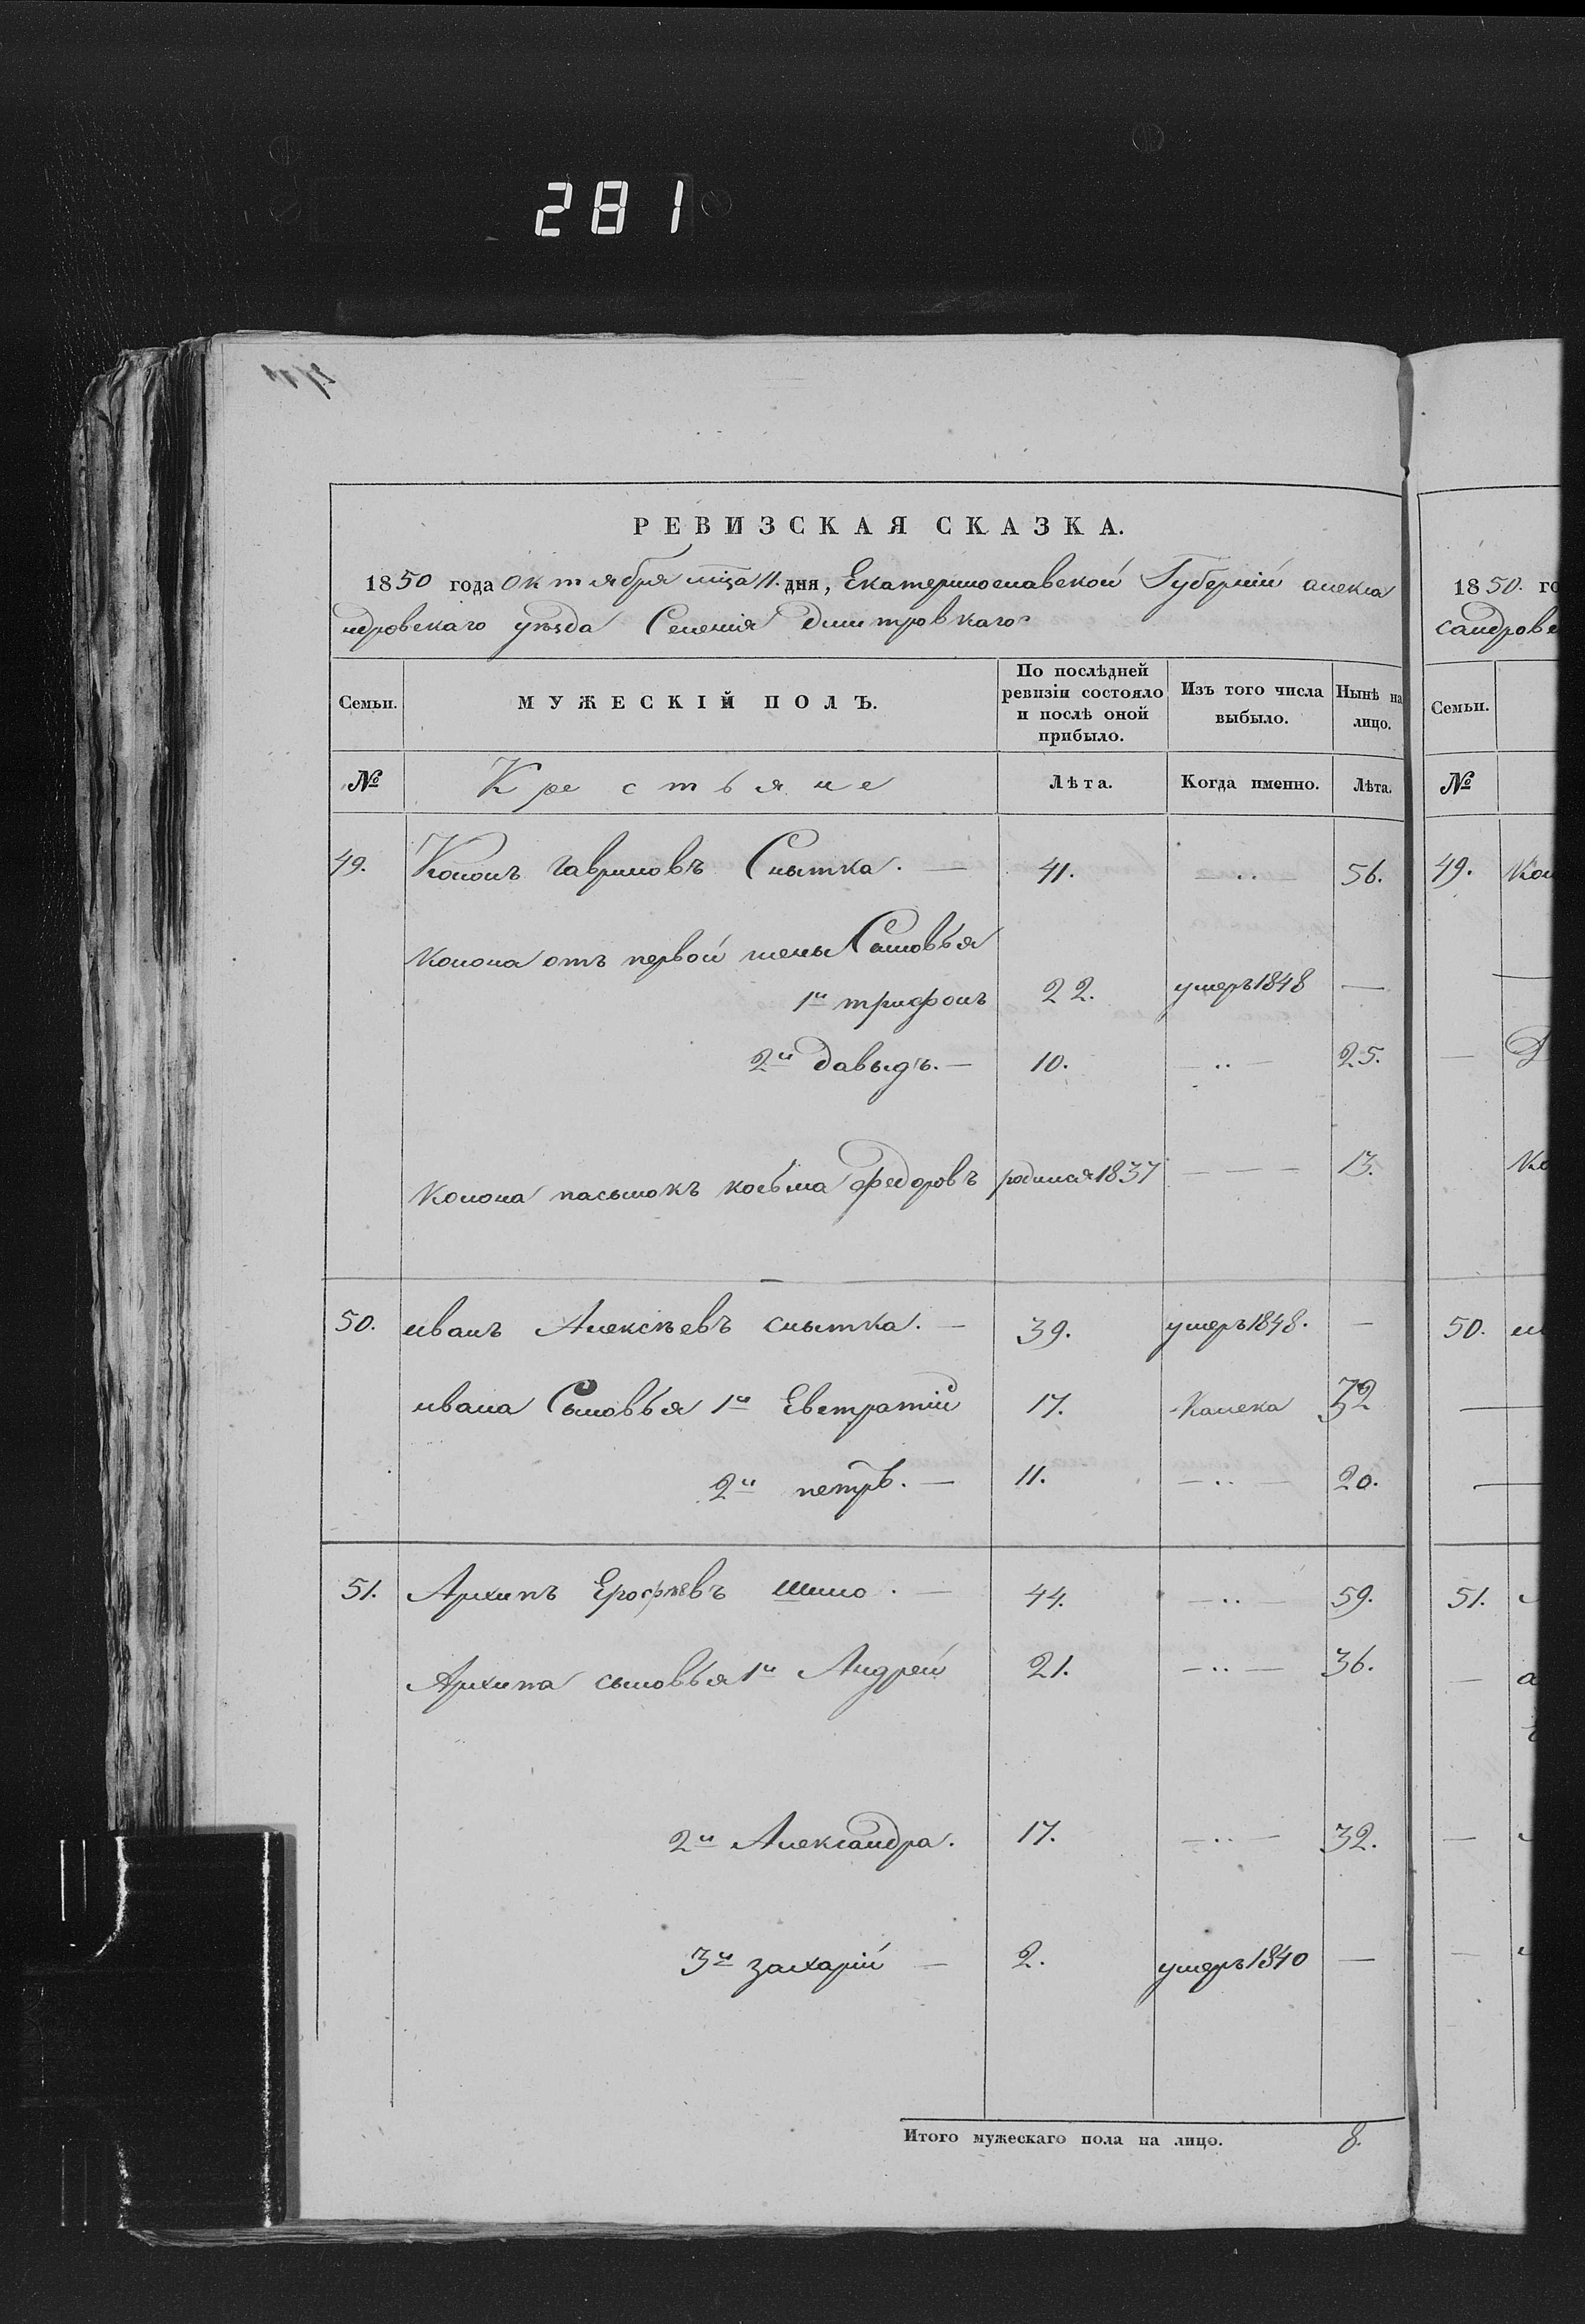 281
РЕВИЗСКАЯ СКАЗКА.
1850 года октября мца 11. дня, Екатеринославской Губерніи алекса
ндровскаго уѣзда Селенія Дмитровкаго
Семьи. МУЖЕСКІЙ ПОЛЪ. По послѣдней ревизіи состояло и послѣ оной прибыло. Изъ того числа выбыло. Нынѣ на лицо.
№ Крестьяне Лѣта. Когда именно. Лѣта.
49. Кононъ гавриловъ Снытка. — 41. — .. — 56.
Конона отъ первой жены Сыновья
1й трифонъ 22. умеръ 1848 —
2й давыдъ. — 10. — .. — 25.
Конона пасынокъ козьма федоровъ родился 1837 — — — 13.
50. иванъ Алексѣевъ снытка. — 39. умеръ 1848. —
ивана Сыновья 1й Евстратій 17. Калека 32
2й петръ. — 11. — .. — 20.
51. Архипъ Ерофѣевъ шило. — 44. — .. — 59.
Архипа сыновья 1й Андрей 21. — .. — 36.
2й Александра. 17. — .. — 32.
3й захарій — 2. умеръ 1840 —
Итого мужескаго пола на лицо. 8.
1850. го
сандровс
Семьи.
№
49. Кон
Ко
50. и
51.